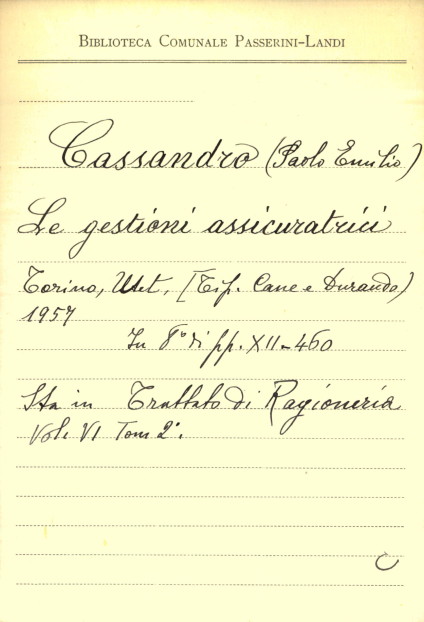 BIBLIOTECA COMUNALE PASSERINI-LANDI
Cassandro (Paolo Emilio)
Le gestioni assicuratrici
Torino, Utet, [Tip. Cane e Durando)
1957
In 8° di pp. XII-460
Sta in Trattato di Ragioneria
Vol. VI Tom 2°.
C